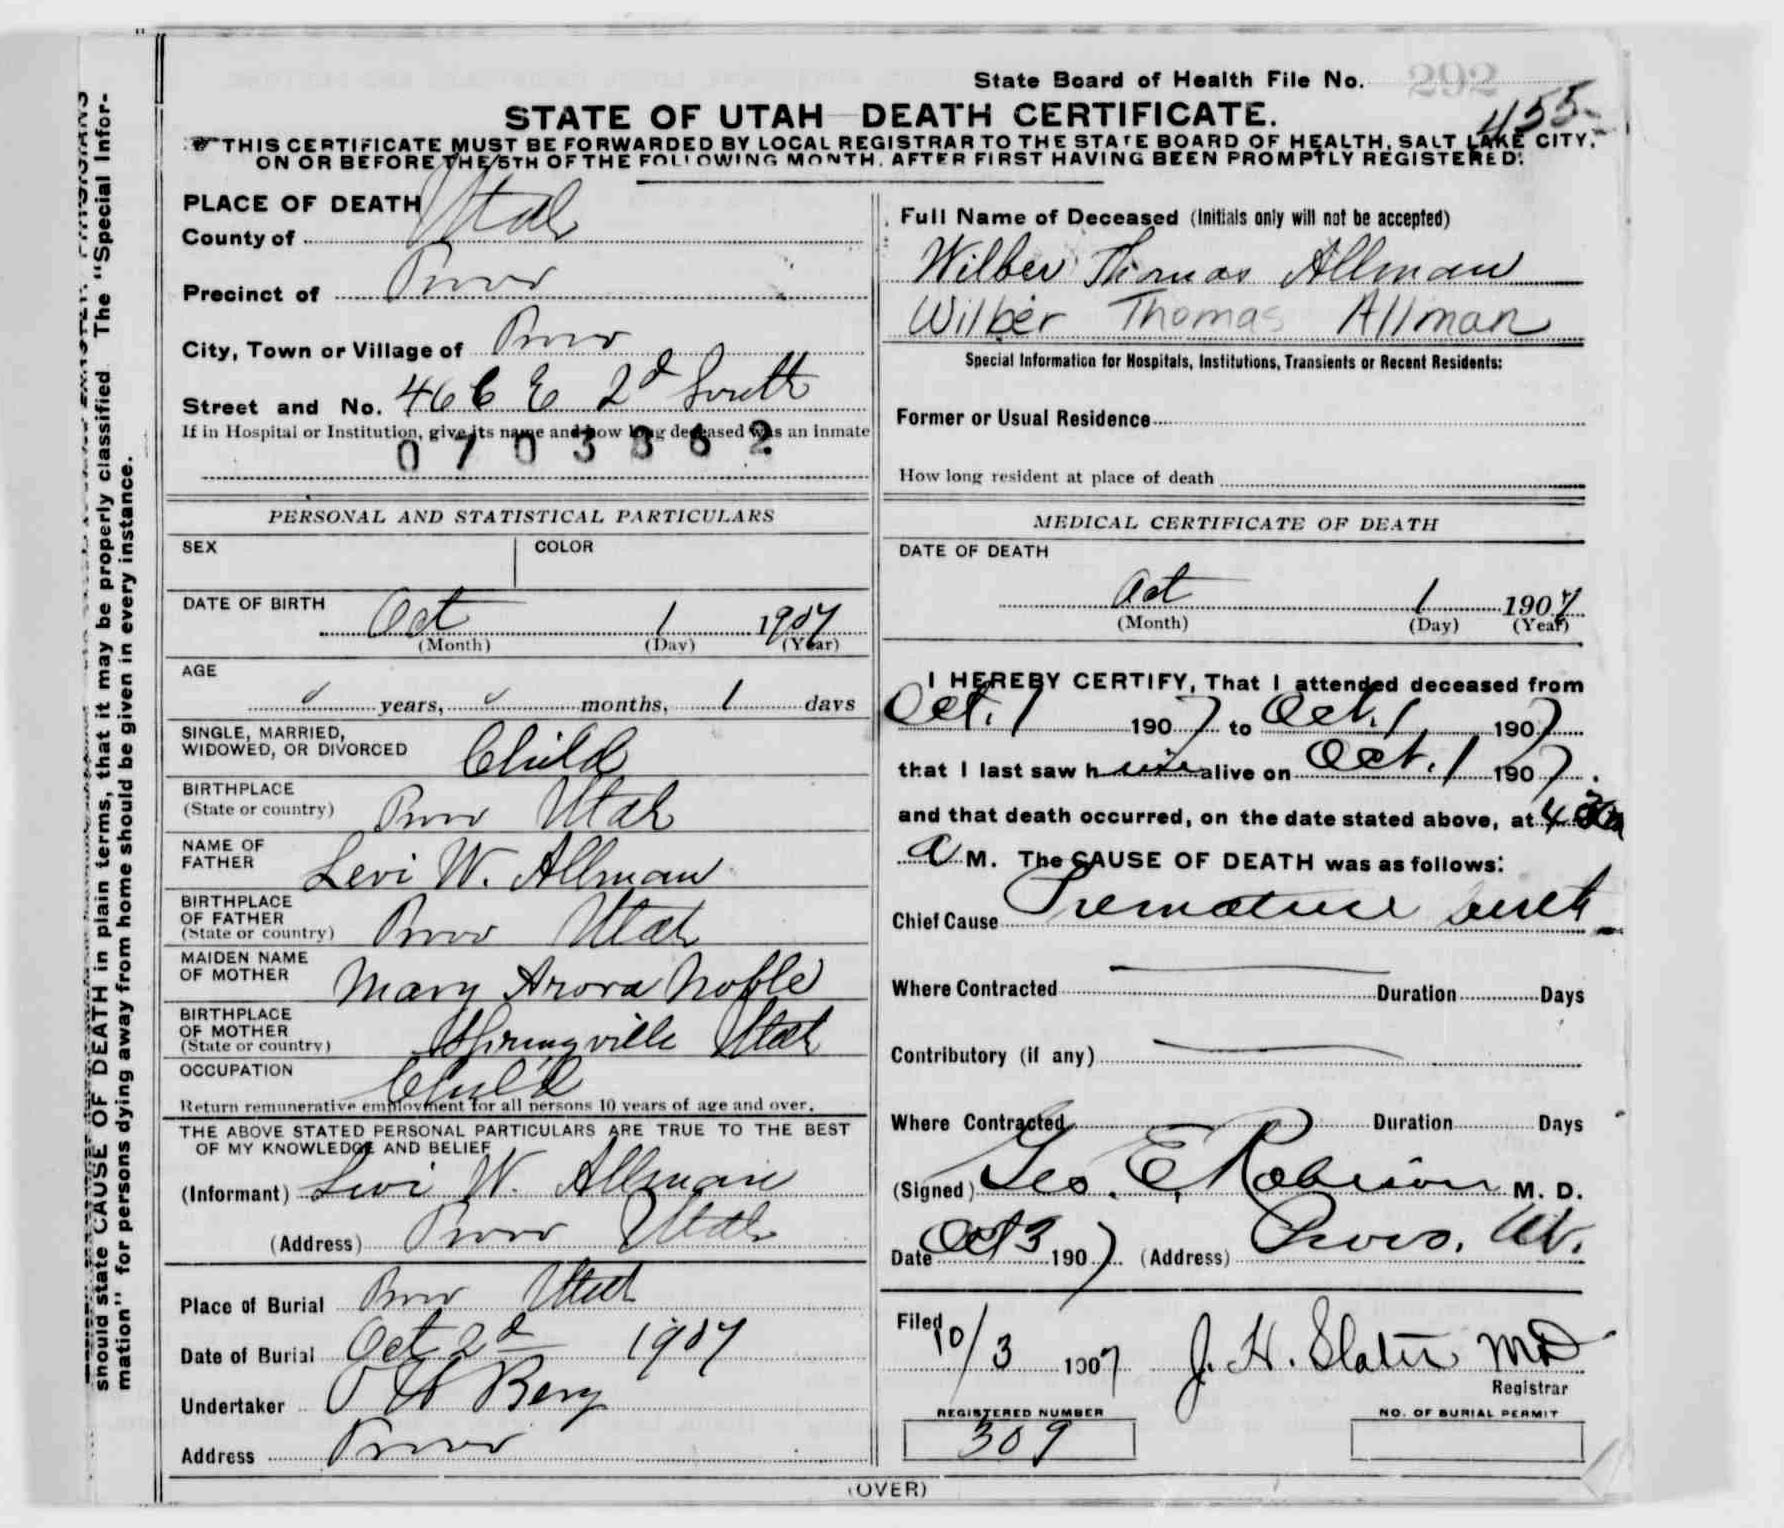 State Board of Health File No. 292
455
STATE OF UTAH DEATH CERTIFICATE.
THIS CERTIFICATE MUST BE FORWARDED BY LOCAL REGISTRAR TO THE STATE BOARD OF HEALTH, SALT LAKE CITY,
ON OR BEFORE THE 5TH OF THE FOLLOWING MONTH, AFTER FIRST HAVING BEEN PROMPTLY REGISTERED.
should state CAUSE OF DEATH in plain terms, that it may be properly classified The "Special Infor-
mation" for persons dying away from home should be given in every instance.
PLACE OF DEATH
County of Utah
Precinct of Provo
City, Town or Village of Provo
Street and No. 466 E 2d South
If in Hospital or Institution, give its name and how long deceased was an inmate
0703362
PERSONAL AND STATISTICAL PARTICULARS
SEX COLOR
DATE OF BIRTH
Oct 1 1907
(Month) (Day) (Year)
AGE
years, months, 1 days
SINGLE, MARRIED,
WIDOWED, OR DIVORCED Child
BIRTHPLACE
(State or country) Provo Utah
NAME OF
FATHER Levi W. Allman
BIRTHPLACE
OF FATHER
(State or country) Provo Utah
MAIDEN NAME
OF MOTHER Mary Arora Noble
BIRTHPLACE
OF MOTHER
(State or country) Springville Utah
OCCUPATION Child
Return remunerative employment for all persons 10 years of age and over.
THE ABOVE STATED PERSONAL PARTICULARS ARE TRUE TO THE BEST
OF MY KNOWLEDGE AND BELIEF
(Informant) Levi W. Allman
(Address) Provo Utah
Place of Burial Provo Utah
Date of Burial Oct 2d 1907
Undertaker O H Berg
Address Provo
Full Name of Deceased (Initials only will not be accepted)
Wilber Thomas Allman
Wilber Thomas Allman
Special Information for Hospitals, Institutions, Transients or Recent Residents:
Former or Usual Residence
How long resident at place of death
MEDICAL CERTIFICATE OF DEATH
DATE OF DEATH
Oct 1 1907
(Month) (Day) (Year)
I HEREBY CERTIFY, That I attended deceased from
Oct. 1 1907 to Oct. 1 1907
that I last saw him alive on Oct. 1 1907.
and that death occurred, on the date stated above, at 4 30
a M. The CAUSE OF DEATH was as follows:
Chief Cause Premature birth
Where Contracted Duration Days
Contributory (if any)
Where Contracted Duration Days
(Signed) Geo. E. Robison M. D.
Date Oct 3 1907 (Address) Provo, Ut.
Filed 10/3 1907 J. H. Slater MD
Registrar
REGISTERED NUMBER
309
NO. OF BURIAL PERMIT
(OVER)